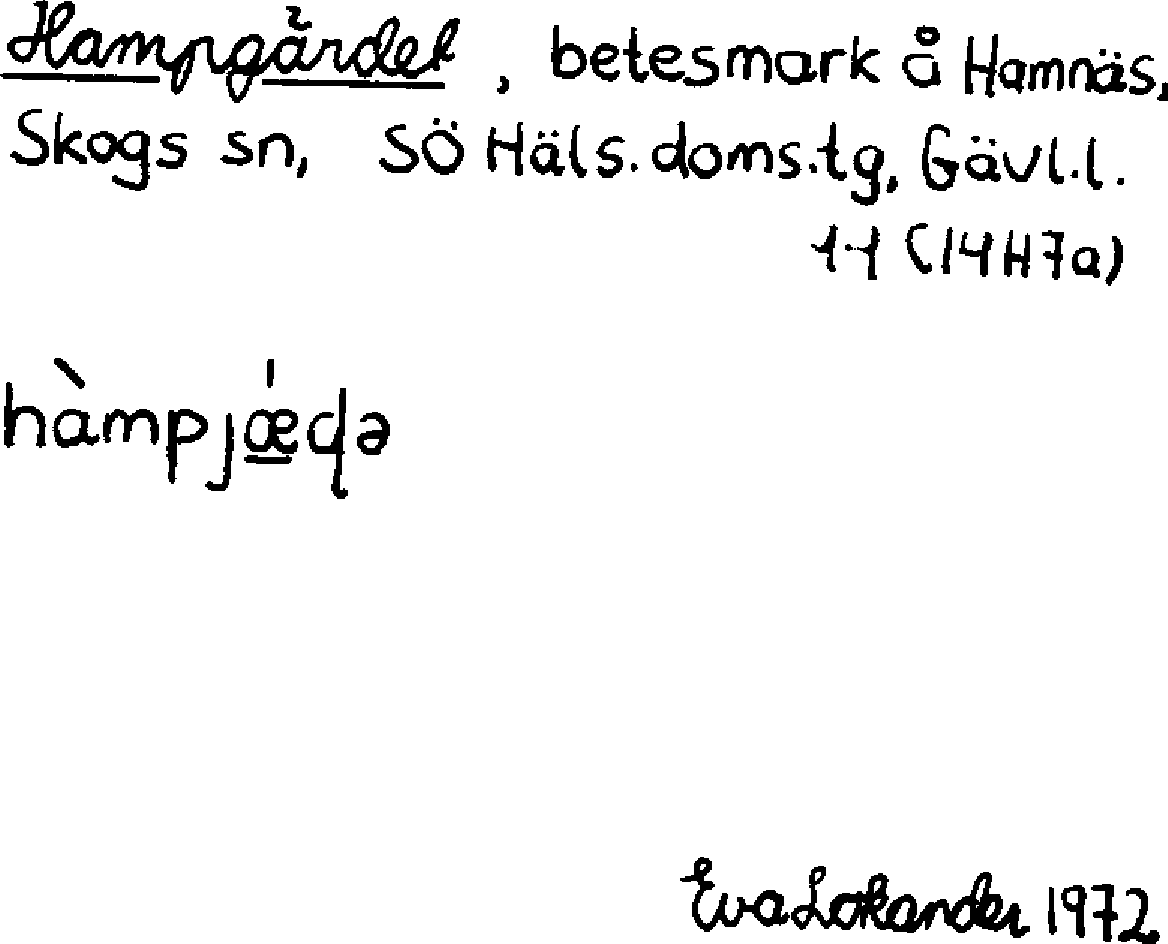 Hampgärdet, betesmark å Hamnäs,
Skogs sn, SÖ Häls.doms.tg, Gävl.l.
1-1 (14H7a)
hàmpjǽ̱ḍə
Eva Lokander 1972